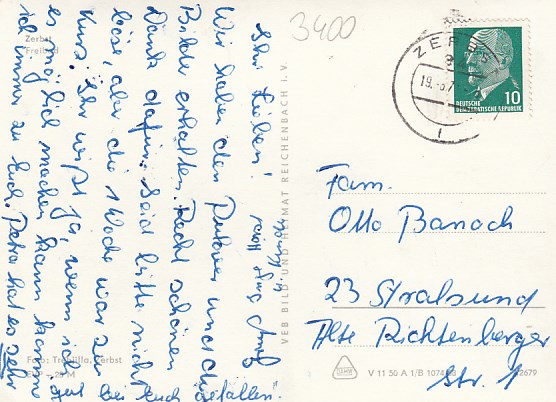 3400
Zerbst
Freibad
ZERBST
19.-8.7
10
DEUTSCHE
DEMOKRATISCHE REPUBLIK
Ihr Lieben!
Wir haben den Pullover und die
Bilder erhalten. Recht schönen
Dank dafür. Seid bitte nicht
böse, aber die 1 Woche war zu
kurz. Ihr wißt ja, wenn ich
es möglich machen kann komme
ich immer zu Euch. Petra hat es sehr
gut bei Euch gefallen.
VEB BILD UND HEIMAT REICHENBACH I. V.
Fam.
Otto Banach
23 Stralsund
Alte Richtenberger
Str. 1
Foto: Zerbst
V 11 50 A 1/B 1074/68
2679